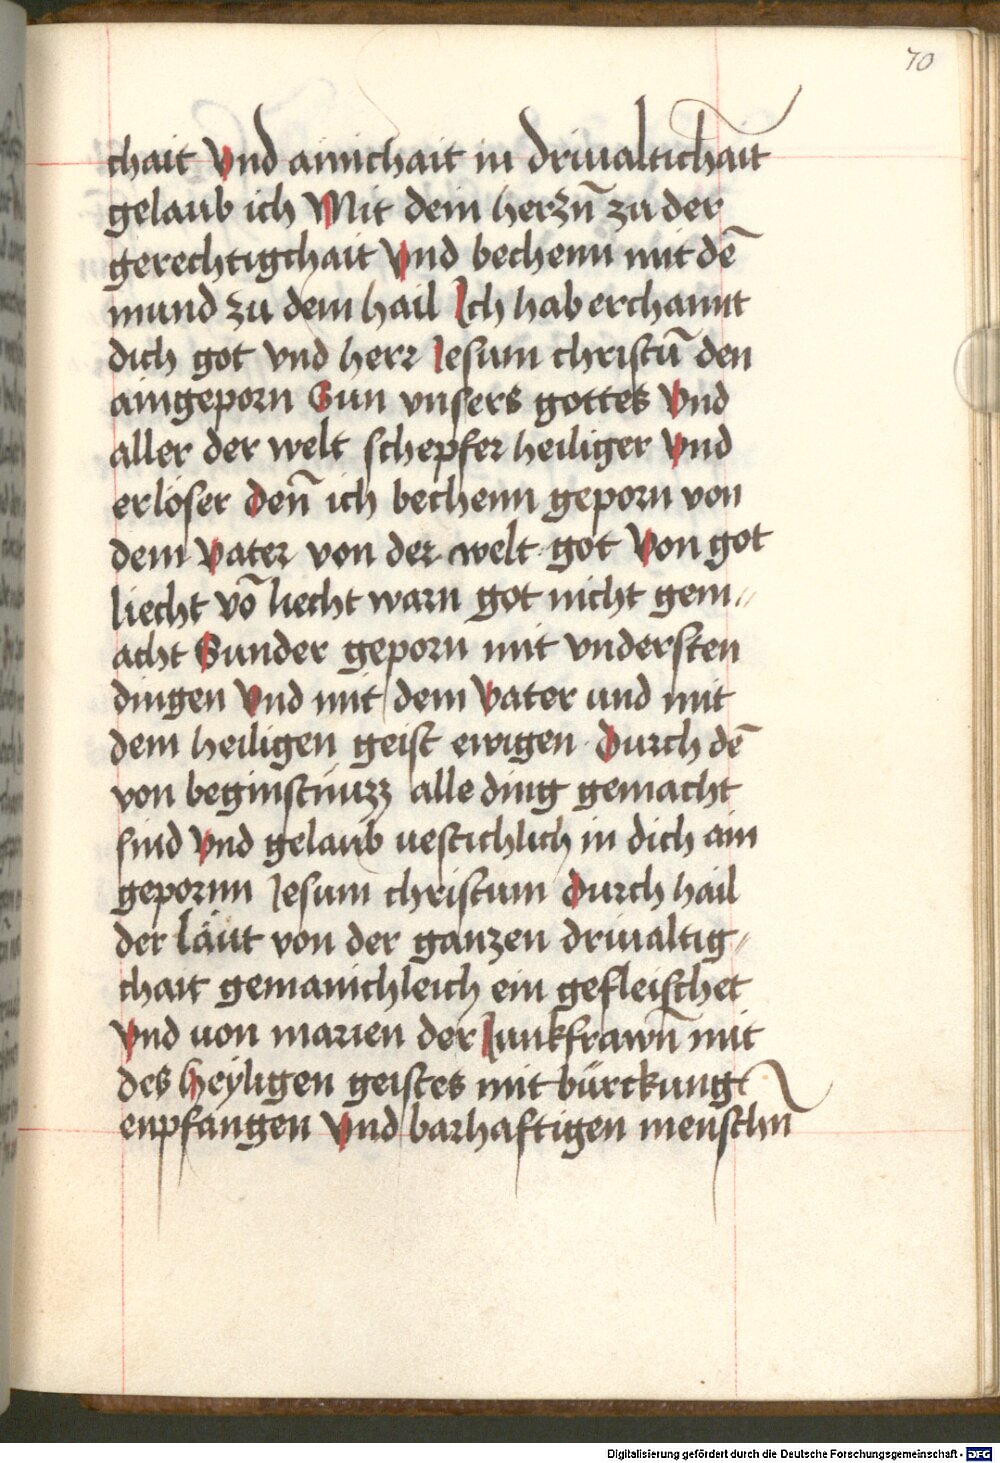 70
chait Vnd ainichait in driualtichait
gelaub ich Mit dem herzn̄ zu der
gerechtigchait Vnd bechenn mit dē
mund zu dem hail Ich hab erchannt
dich got vnd herr Iesum christū den
aingeporn Sun vnsers gottes Vnd
aller der welt schepfer heiliger Vnd
erlöser den̄ ich bechenn geporn von
dem Vater von der welt got Von got
liecht vō liecht warn got nicht gem⸗
acht Sunder geporn mit vndersten
dingen Vnd mit dem Vater und mit
dem heiligen geist ewigen Durch dē
von beginstnuzz alle ding gemacht
sind Vnd gelaub uestichlich in dich ain
gepornn Iesum christum durch hail
der läut von der ganzen driualtig⸗
chait gemainichleich ein gefleischet
Vnd uon marien der Iunkfrawn̄ mit
des heyligen geistes mit bürckung
enpfangen Vnd barhaftigen menschn̄
Digitalisierung gefördert durch die Deutsche Forschungsgemeinschaft - DFG